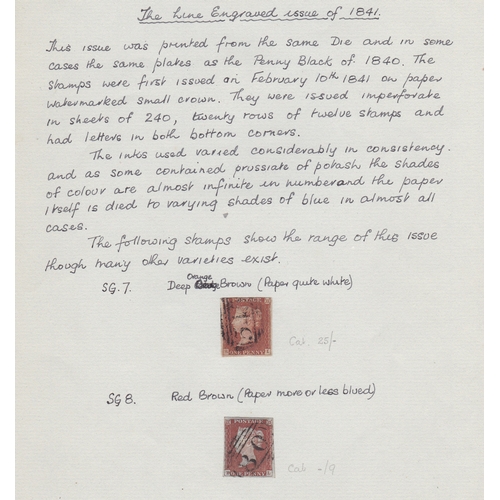 The Line Engraved issue of 1841.
This issue was printed from the same Die and in some
cases the same plates as the Penny Black of 1840. The
stamps were first issued on February 10th 1841 on paper
watermarked small crown. They were issued imperforate
in sheets of 240, twenty rows of twelve stamps and
had letters in both bottom corners.
The inks used varied considerably in consistency.
and as some contained prussiate of potash the shades
of colour are almost infinite in number and the paper
itself is died to varying shades of blue in almost all
cases.
The following stamps show the range of this issue
though many other varieties exist.
SG.7. Deep Orange Brown (Paper quite white)
POSTAGE
ONE PENNY
Cat. 25/-
SG 8. Red Brown (Paper more or less blued)
POSTAGE
ONE PENNY
Cat -/9